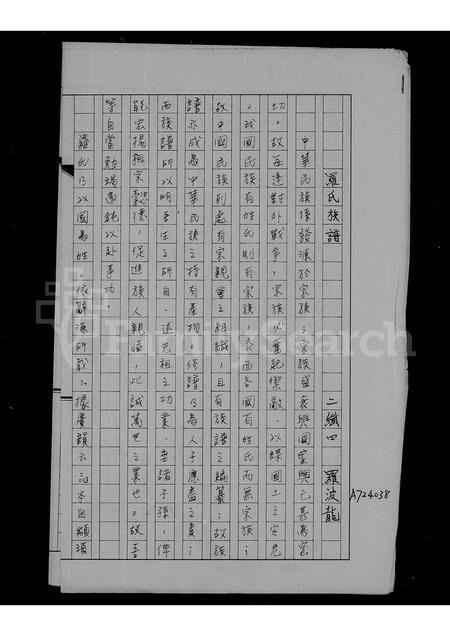 羅氏族譜 二纖四 羅波龍
中華民族係發源於宗族;宗族盛衰與國家興亡甚為密
切。故每逢對外戰爭,宗族必奮起傑敵、以謀國土之安危
。我國民族有姓氏則有宗族,泰西各國有姓氏而無宗族;
故中國民族到處有宗親會之組織,且有族譜之編纂;故族
譜亦成為中華民族之特有產物。修譜乃為人子應盡之責;
而族譜所以明吾生之所自、述先祖之功業、垂諸子孫,俾
能宏揚祖宗懿德,促進族人親睦,此誠萬世之業也。故吾
等自當勉竭愚鈍以赴事功。
羅氏乃以國為姓、依辭源所載:據廣韻云:本自顓頊
A724038
FamilySearch